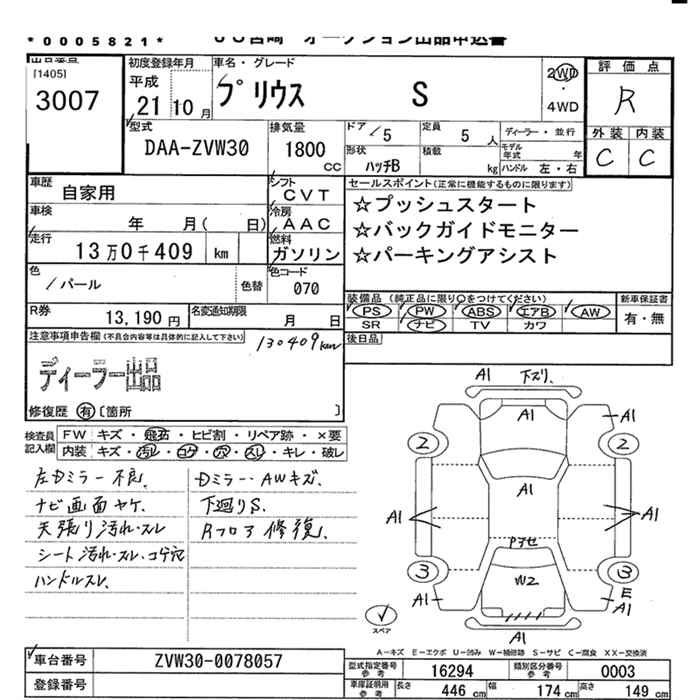 *0005821*
UU宮崎 オークション出品申込書
出品番号
[1405]
3007
初度登録年月
平成
21 10 月
車名・グレード
プリウス S
2WD
・
4WD
評価点
R
外装 内装
C C
型式
DAA-ZVW30
排気量
1800
cc
ドア / 5
定員 5 人
形状 ハッチB
積載 kg
ディーラー・並行
モデル年式 年
ハンドル 左・右
車歴 自家用
車検 年 月( 日)
走行 13万0千409 km
シフト CVT
冷房 AAC
燃料 ガソリン
セールスポイント(正常に機能するものに限ります)
☆プッシュスタート
☆バックガイドモニター
☆パーキングアシスト
色 /パール
色替
色コード 070
装備品 (純正品に限り○をつけてください)
PS PW ABS エアB AW
SR ナビ TV カワ
新車保証書
有・無
後日品
R券 13,190円
名変通知期限 月 日
注意事項申告欄(不具合内容等は具体的に記入して下さい)
130409km
ディーラー出品
修復歴 有 〔箇所 〕
検査員記入欄
FW キズ・飛石・ヒビ割・リペア跡・×要
内装 キズ・汚レ・コゲ・穴・スレ・キレ・破レ
左Dミラー不良、
ナビ画面ヤケ、
天張り汚れ・スレ
シート汚れ・スレ、コゲ穴
ハンドルスレ、
Dミラー・AWキズ、
下廻りS、
Rフロア修復、
A1 下ズリ、
A1
A1
2 2
A1
A1
A1
A1
3 3
W2
A1
E
A1
A1
スペア
A-キズ E-エクボ U-凹み W-補修跡 S-サビ C-腐食 XX-交換済
車台番号 ZVW30-0078057
登録番号
型式指定番号 参考 16294
類別区分番号 参考 0003
車庫証明用 参考 長さ 446 cm 幅 174 cm 高さ 149 cm